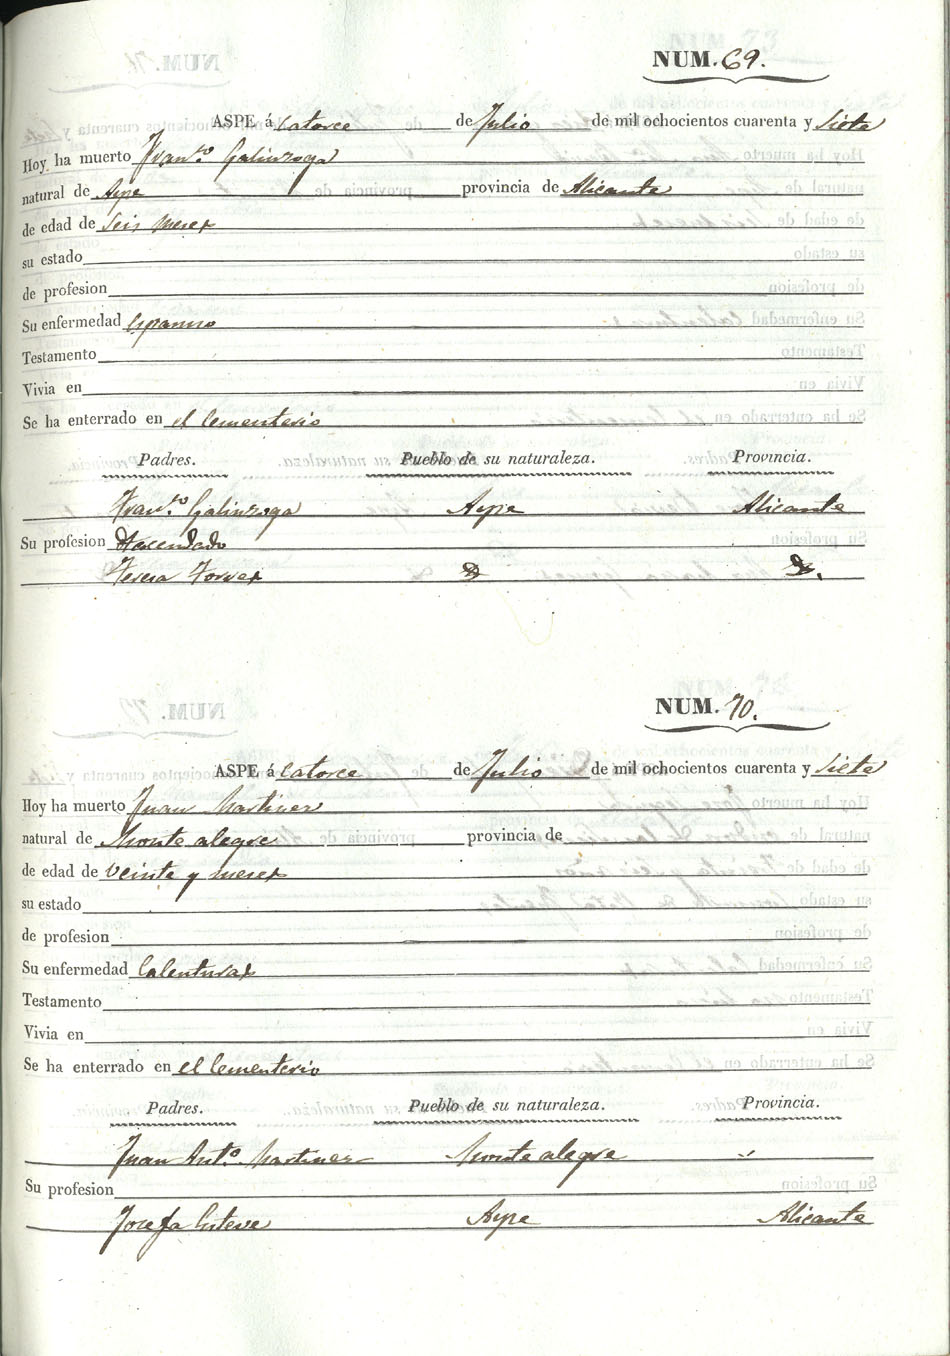 NUM. 69.
ASPE á Catorce de Julio de mil ochocientos cuarenta y Siete
Hoy ha muerto Franco. Galinzoga
natural de Aspe provincia de Alicante
de edad de Seis meses
su estado
de profesion
Su enfermedad Espasmo
Testamento
Vivia en
Se ha enterrado en el Cementerio
Padres. Pueblo de su naturaleza. Provincia.
Franco. Galinzoga Aspe Alicante
Su profesion Hacendado
Teresa Torres
NUM. 70.
ASPE á Catorce de Julio de mil ochocientos cuarenta y Siete
Hoy ha muerto Juan Martinez
natural de Monte alegre provincia de
de edad de Veinte y meses
su estado
de profesion
Su enfermedad Calenturas
Testamento
Vivia en
Se ha enterrado en el Cementerio
Padres. Pueblo de su naturaleza. Provincia.
Juan Anto. Martinez Monte alegre "
Su profesion
Josefa Esteve Aspe Alicante